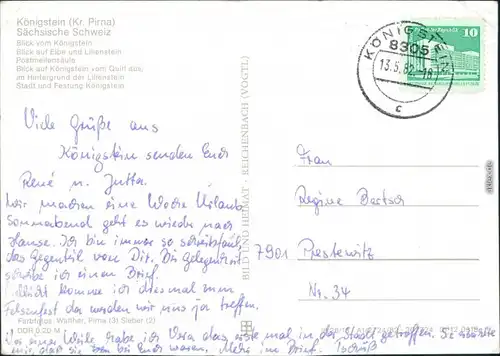 Königstein (Kr. Pirna)
Sächsische Schweiz
Blick vom Königstein
Blick auf Elbe und Lilienstein
Postmeilensäule
Blick auf Königstein vom Quirl aus,
im Hintergrund der Lilienstein
Stadt und Festung Königstein
KÖNIGSTEIN
8305
13.5.82-18
c
10
Viele Grüße aus
Königstein senden Euch
René u. Jutta.
Wir machen eine Woche Urlaub,
Sonnabend geht es wieder nach
Hause. Ich bin immer so schreibfaul,
das Gegenteil von Dir. Bei Gelegenheit
schreibe ich einen Brief.
komme ich diesmal zum
Felsenfest da werden wir uns ja treffen.
Vor einer Weile habe ich Vera das erste mal in der Stadt getroffen. Sie
mir, daß sie bei Euch waren. Mehr im Brief.
Frau
Regine Bartsch
7901 Prestewitz
Nr. 34
BILD UND HEIMAT · REICHENBACH (VOGTL)
Farbfotos: Walther, Pirna (3) Sieber (2)
DDR 0,20 M